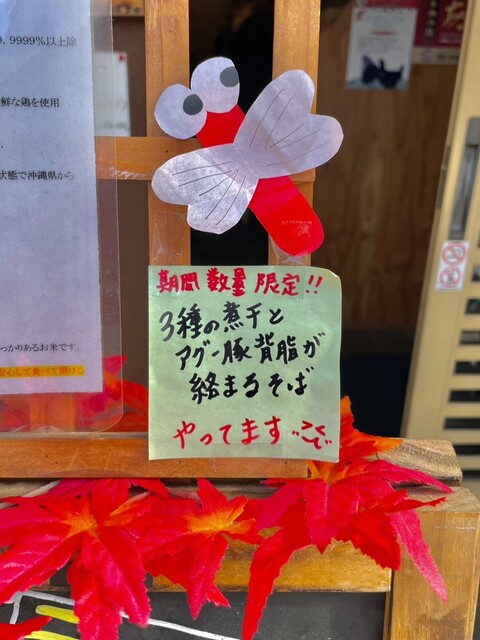 9999%以上除
鮮な鶏を使用
状態で沖縄県から
っかりあるお米です。
安心して食べて頂ける
期間 数量 限定!!
3種の煮干と
アグー豚背脂が
絡まるそば
やってます